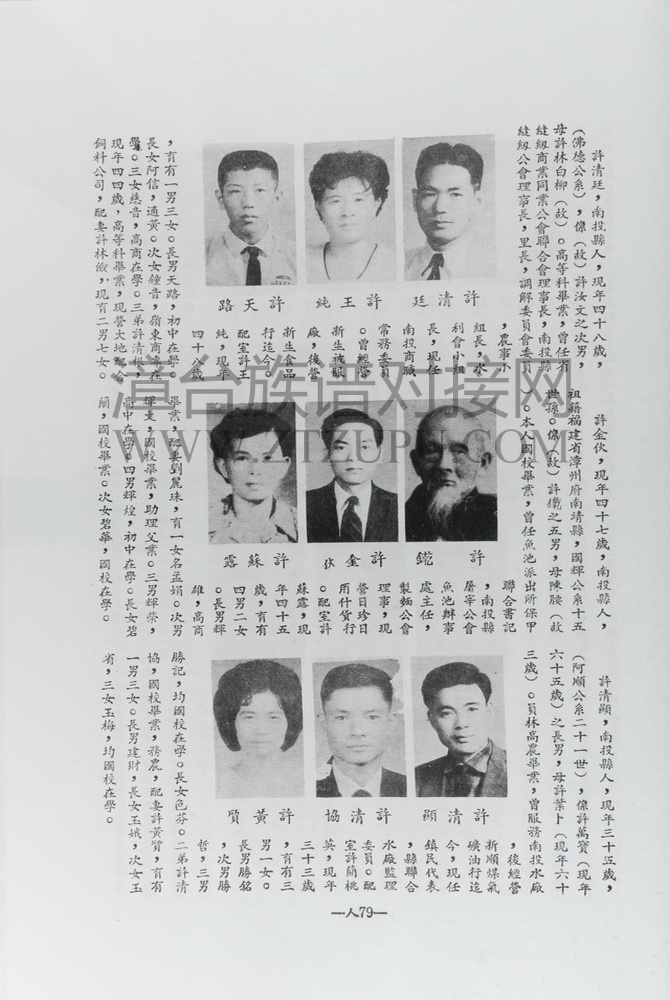 許清廷，南投縣人，現年四十八歲，
（佛德公系），係（故）許汝文之次男，
母許林白柳（故）。高等科畢業，曾任省
縫紉商業同業公會聯合會理事長，南投縣
縫紉公會理事長，里長，調解委員會委員
，農事小
組長，水
利會小組
長，現任
南投商職
常務委員
。曾經營
新生被服
廠，後營
新生食品
行迄今。
配室許王
純，現年
四十八歲
，育有一男三女。長男天路，初中在學。
長女阿信，適黃。次女鐘音，嶺東商專在
學。三女慈音，高商在學。三弟許清根，
現年四四歲，高等科畢業，現營大地配合
飼料公司，配妻許林儉，現育二男七女。
許清廷
許王純
許天路
許金伙，現年四十七歲，南投縣人，
祖籍福建省漳州府南靖縣，國輝公系十五
世孫。係（故）許鑨之五男，母陳腰（故
）。本人國校畢業，曾任魚池派出所保甲
聯合書記
，南投縣
屠宰公會
魚池辦事
處主任，
製麵公會
理事，現
營日珍日
用什貨行
。配室許
蘇露，現
年四十五
歲，育有
四男二女
。長男輝
雄，高商
畢業，配妻劉麗珠，育一女名孟娟。次男
輝文，國校畢業，助理父業。三男輝榮，
高中在學。四男輝煌，初中在學。長女碧
蘭，國校畢業。次女碧華，國校在學。
許金伙
許蘇露
許清顯，南投縣人，現年三十五歲，
（阿順公系二十一世），係許萬寶（現年
六十五歲）之長男，母許葉卜（現年六十
三歲）。員林高農畢業，曾服務南投水廠
，後經營
新順煤氣
礦油行迄
今，現任
鎮民代表
，縣聯合
水廠監理
委員。配
室許簡桃
英，現年
三十三歲
，育有三
男一女。
長男勝銘
，次男勝
哲，三男
勝記，均國校在學。長女色芬。二弟許清
協，國校畢業，務農，配妻許黃質，育有
一男三女。長男建財，長女玉娥，次女玉
省，三女玉梅，均國校在學。
許清顯
許清協
許黃質
—人79—
漳台族谱对接网
WWW.ZTZUPU.COM